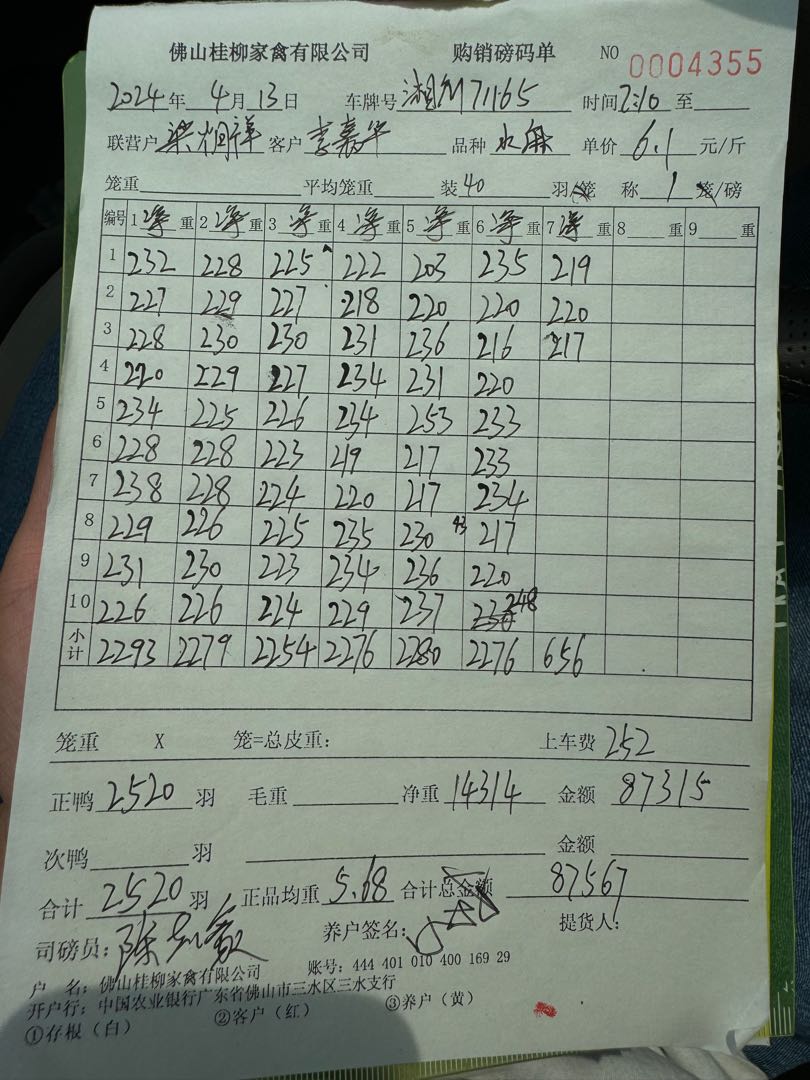 佛山桂柳家禽有限公司 购销磅码单 NO 0004355
2024年 4月 13日 车牌号 湘M71165 时间 7:10 至
联营户 梁祖祥 客户 李嘉华 品种 水麻 单价 6.1 元/斤
笼重 平均笼重 装 40 羽/笼 称 1 笼/磅
编号 1 净 重 2 净 重 3 净 重 4 净 重 5 净 重 6 净 重 7 净 重 8 重 9 重
1 232 228 225 222 203 235 219
2 227 229 227 218 220 220 220
3 228 230 230 231 236 216 217
4 220 229 227 234 231 220
5 234 225 226 234 253 233
6 228 228 223 219 217 233
7 238 228 224 220 217 234
8 229 226 225 235 230 217
9 231 230 223 234 236 220
10 226 226 224 229 237 248
小计 2293 2279 2254 2276 2280 2276 656
笼重 X 笼=总皮重: 上车费 252
正鸭 2520 羽 毛重 净重 14314 金额 87315
次鸭 羽 金额
合计 2520 羽 正品均重 5.68 合计总金额 87567
司磅员: 陈 养户签名: 提货人:
户 名: 佛山桂柳家禽有限公司 账号: 444 401 010 400 169 29
开户行: 中国农业银行广东省佛山市三水区三水支行
①存根（白） ②客户（红） ③养户（黄）